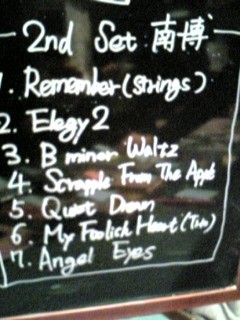 2nd Set 南博
1. Remember (Strings)
2. Elegy 2
3. B minor Waltz
4. Scrapple From The Apple
5. Quiet Dream
6. My Foolish Heart (Trio)
7. Angel Eyes